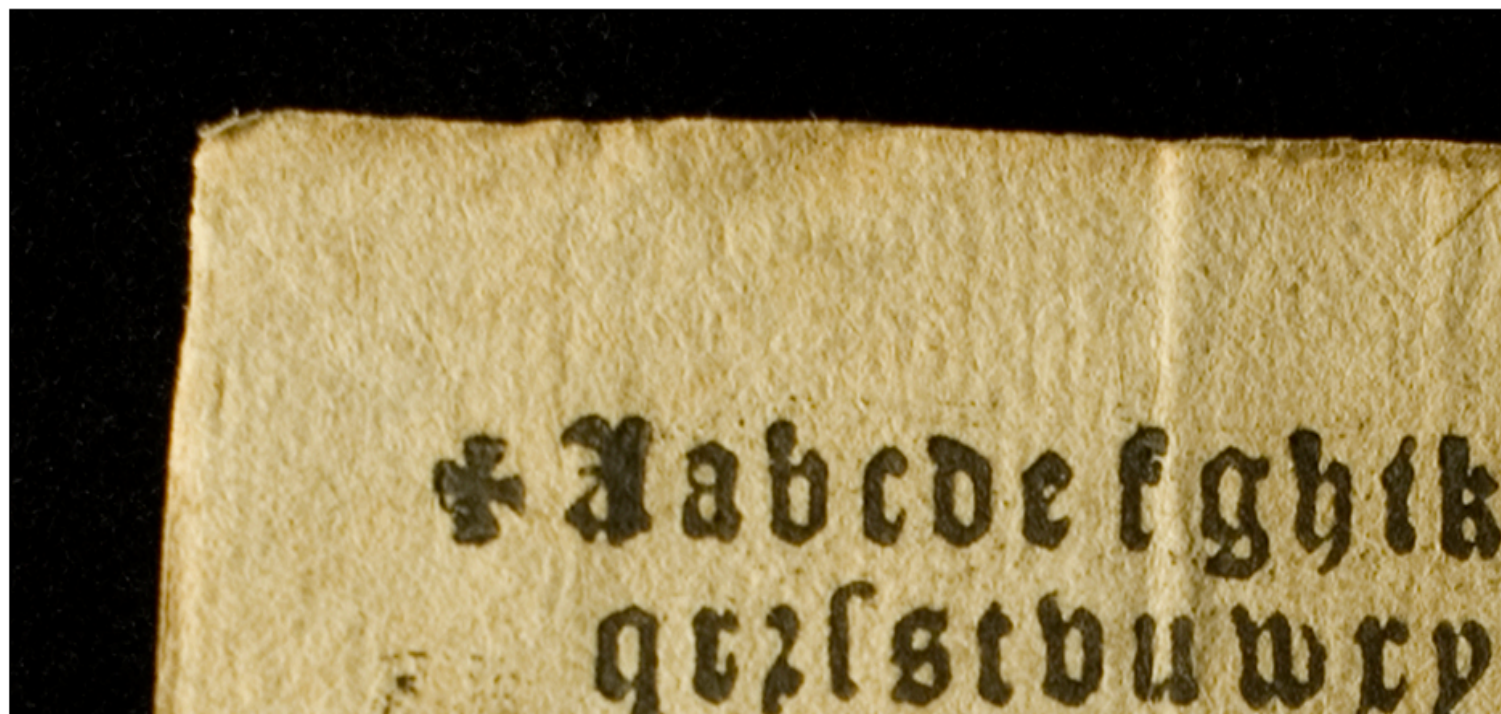 ✠ A a b c d e f g h i k
q r ꝛ ſ s t v u w x y